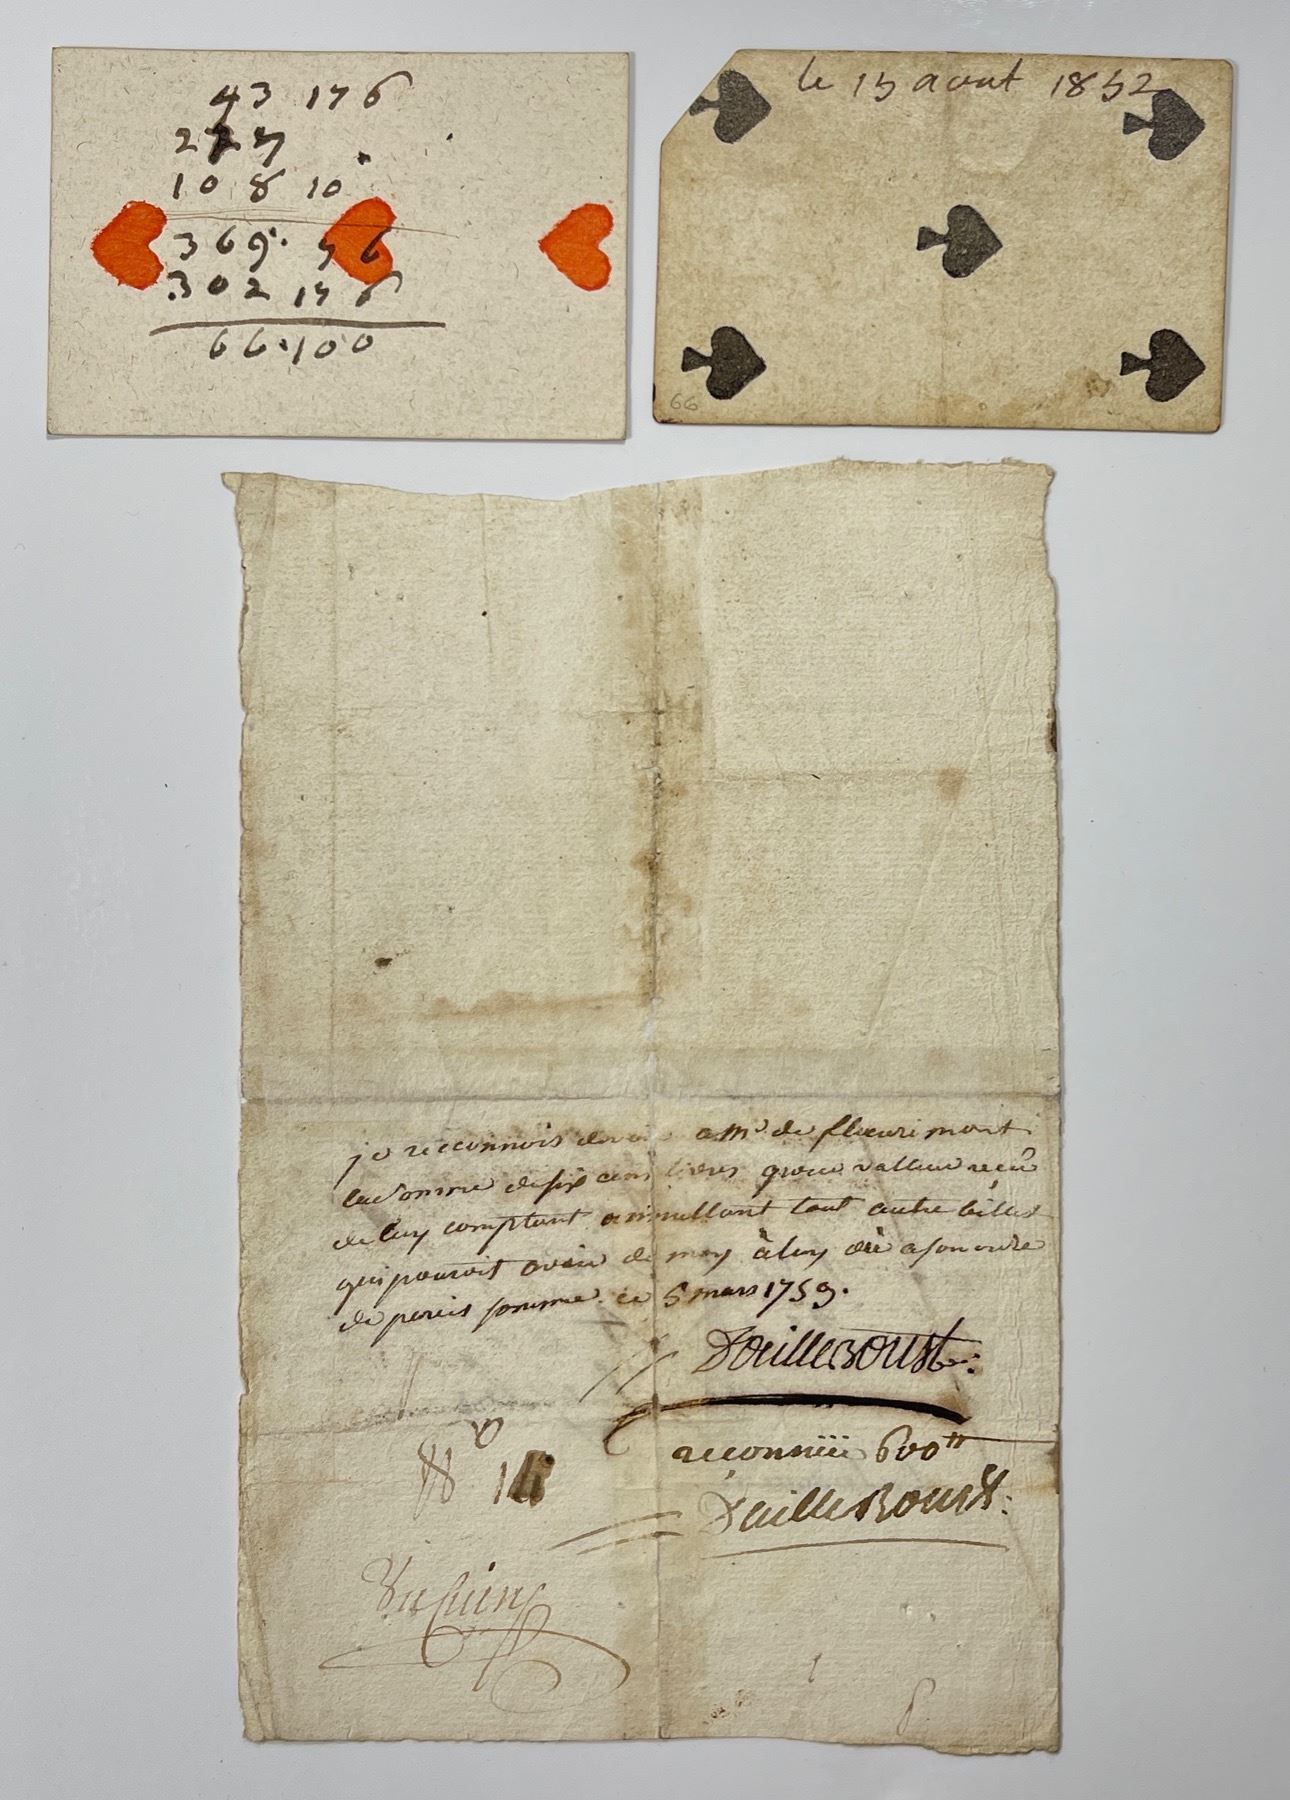 43 17 6
227
10 8 10
369. 7 6
302 17 6
66.100
le 15 aout 1852
66
je reconnois devoir a Mr de fleurimont
la somme de six cens livres pour valleur reçu
de luy comptant annullant tout autre billet
qui pouroit avoir de moy à luy ou a son ordre
de pareis somme. ce 5 mars 1759.
Dailleboust
reconnüe 600tt
DailleBoust
No